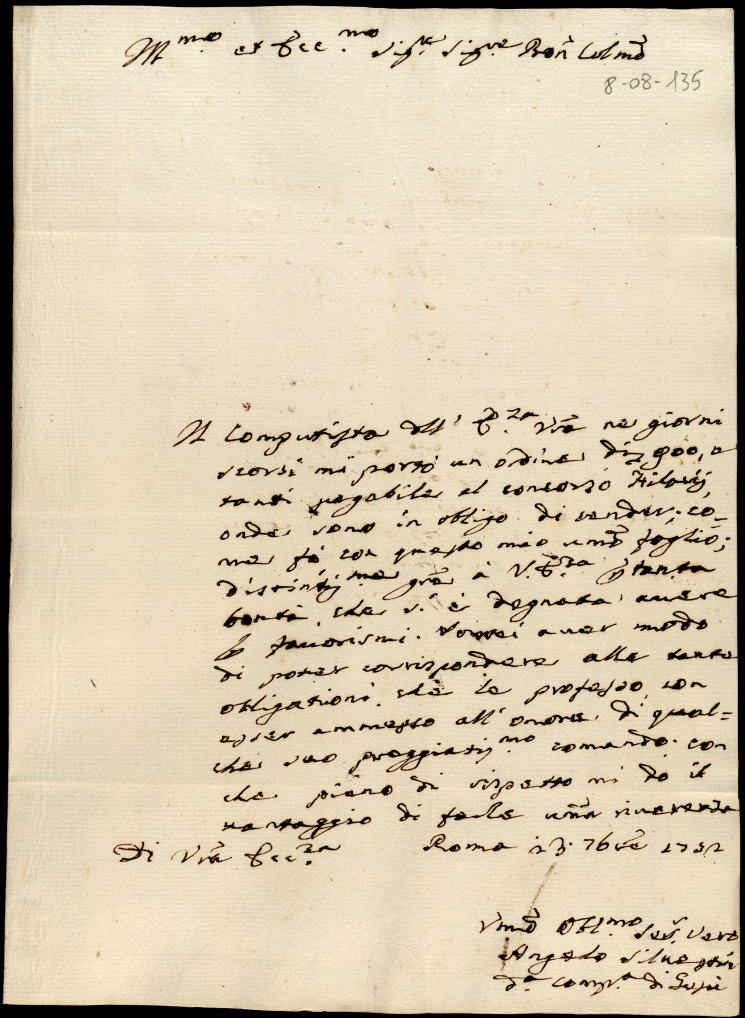 Ill.mo et Ecc.mo Sig.re Sig.re Pron Colmo
8-08-135
Il Computista dell' E.za Vra ne giorni
scorsi mi portò un ordine di 900, e
tanti pagabile al concorso
onde sono in obligo di render, co-
me fo con questo mio umo foglio,
distintissme gre à V. E.za p tanta
bontà, che s' è degnata avere
p favorirmi. Vorrei aver modo
di poter corrispondere alle tante
obligationi, che le professo, con
esser ammesso all' onore di qual=
che suo preggiatissmo comando. con
che pieno di rispetto mi do il
vantaggio di farle uma riverenza
Di Vra Ecc.za Roma 23 7bre 1732
Vmo Obl.mo Ser. Vero
Angelo Silvestri
d.a Comp.a di Gesù